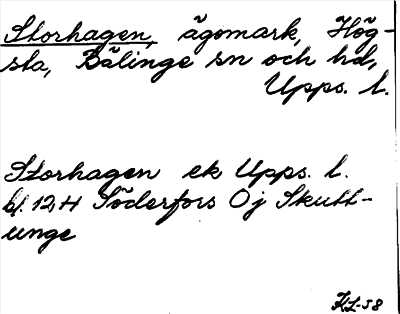 Storhagen, ägomark, Hög-
sta, Bälinge sn och hd,
Upps. l.
Storhagen ek Upps. l.
bl. 12,4 Söderfors Oj Skutt-
unge
KL-58